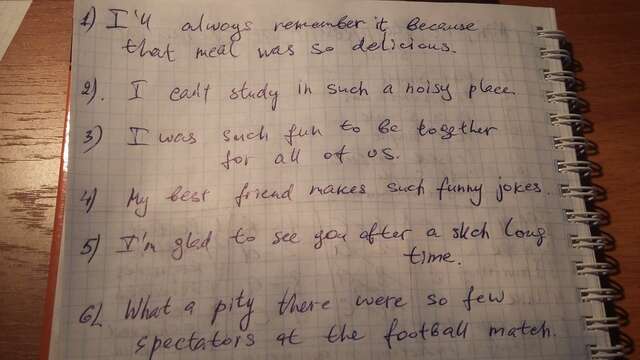 1) I'll always remember it because
that meal was so delicious.
2). I can't study in such a noisy place.
3) I was such fun to be together
for all of us.
4) My best friend makes such funny jokes.
5) I'm glad to see you after a such long
time.
6). What a pity there were so few
spectators at the football match.